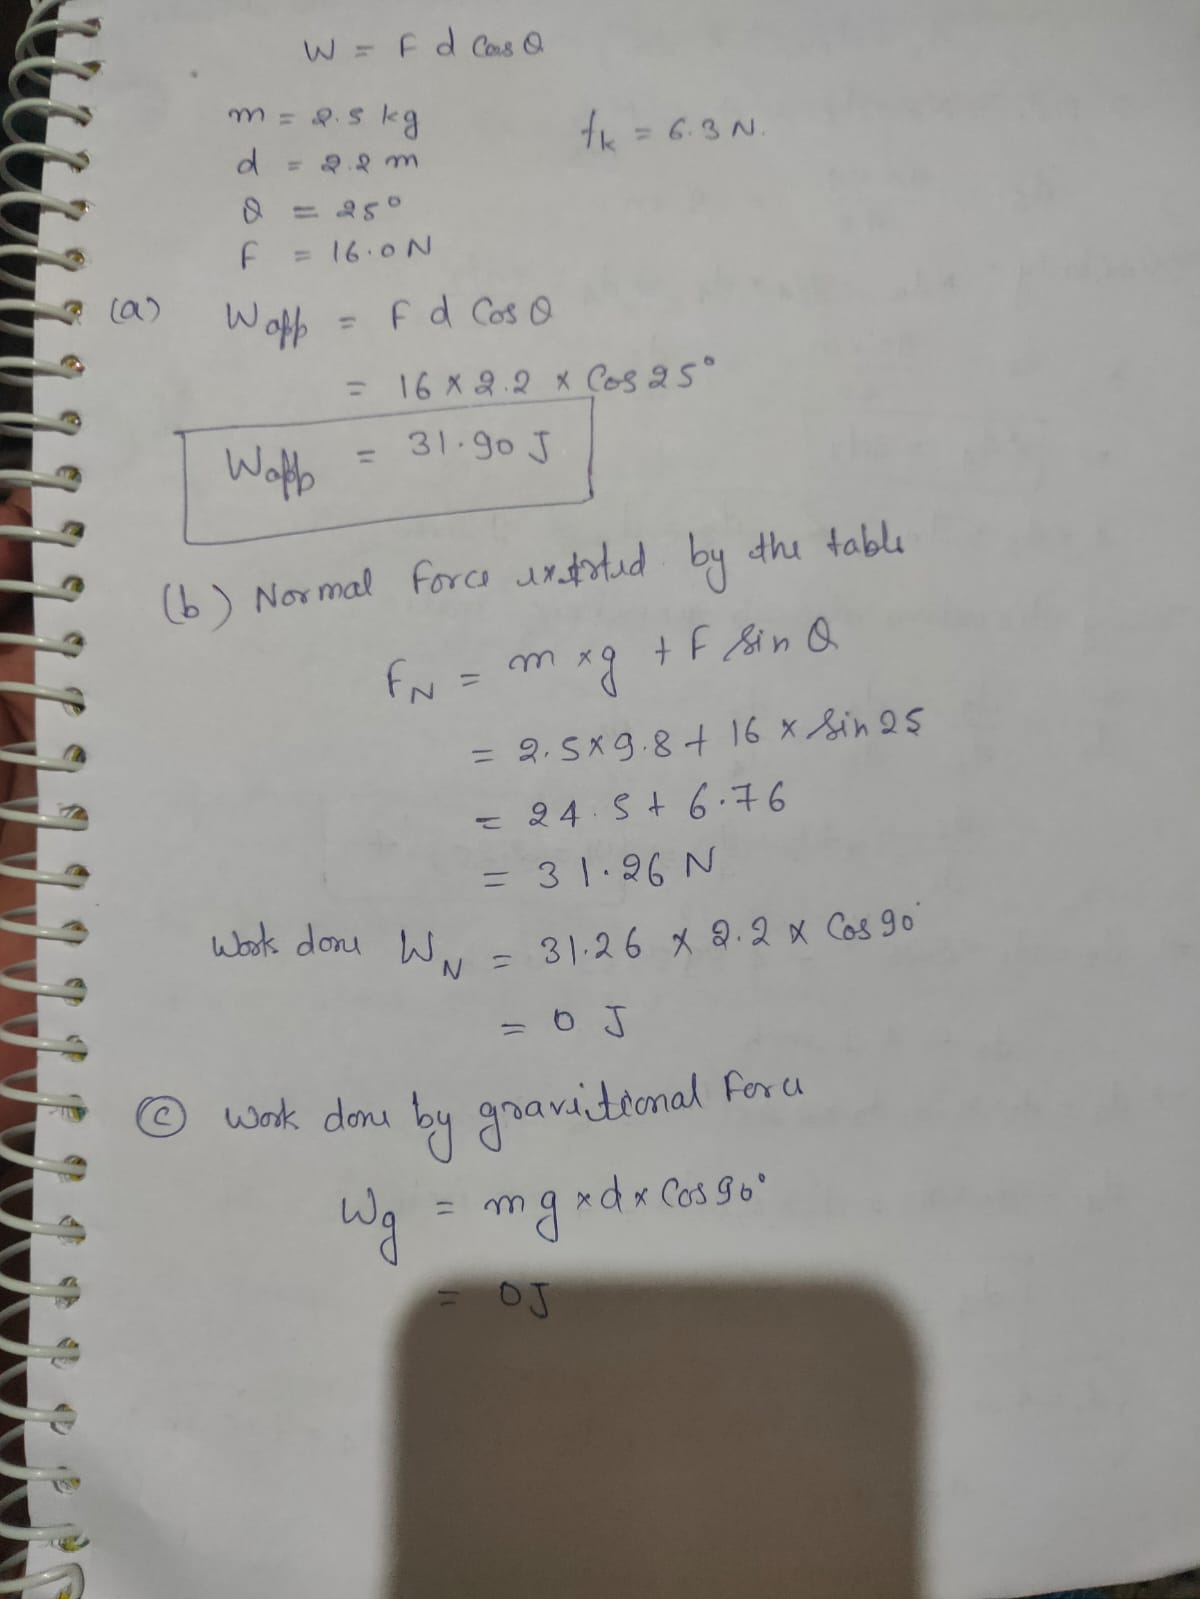 W = F d Cos θ
m = 2.5 kg
fk = 6.3 N.
d = 2.2 m
θ = 25°
F = 16.0 N
(a) Wapp = F d Cos θ
= 16 × 2.2 × Cos 25°
Wapp = 31.90 J
(b) Normal Force exerted by the table
FN = m × g + F Sin θ
= 2.5 × 9.8 + 16 × Sin 25
= 24.5 + 6.76
= 31.26 N
Work done WN = 31.26 × 2.2 × Cos 90°
= 0 J
(c) Work done by gravitional Force
Wg = mg × d × Cos 90°
= 0 J